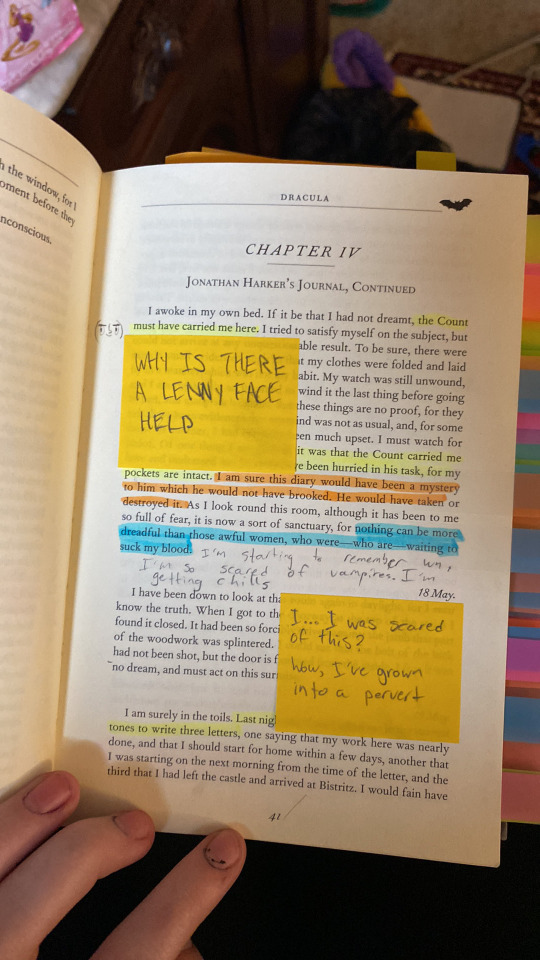 h the window, for I
oment before they
nconscious.
DRACULA
CHAPTER IV
JONATHAN HARKER'S JOURNAL, CONTINUED
I awoke in my own bed. If it be that I had not dreamt, the Count
must have carried me here. I tried to satisfy myself on the subject, but
able result. To be sure, there were
t my clothes were folded and laid
abit. My watch was still unwound,
wind it the last thing before going
these things are no proof, for they
ind was not as usual, and, for some
een much upset. I must watch for
it was that the Count carried me
ve been hurried in his task, for my
pockets are intact. I am sure this diary would have been a mystery
to him which he would not have brooked. He would have taken or
destroyed it. As I look round this room, although it has been to me
so full of fear, it is now a sort of sanctuary, for nothing can be more
dreadful than those awful women, who were—who are—waiting to
suck my blood.
WHY IS THERE
A LENNY FACE
HELP
I'm starting to remember
I'm so scared of vampires. I'm
getting chills
18 May.
I have been down to look at tha
know the truth. When I got to the
found it closed. It had been so forci
of the woodwork was splintered.
had not been shot, but the door is f
no dream, and must act on this sur
I... I was scared
of this?
wow, I've grown
into a pervert
I am surely in the toils. Last nig
tones to write three letters, one saying that my work here was nearly
done, and that I should start for home within a few days, another that
I was starting on the next morning from the time of the letter, and the
third that I had left the castle and arrived at Bistritz. I would fain have
41